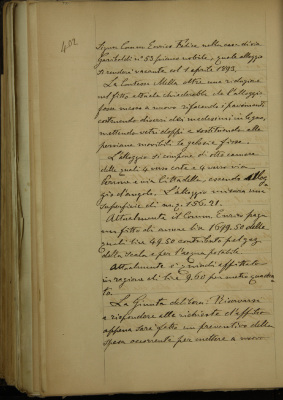 402
Signor Comm. Enrico Fabrice nella casa di via
Garibaldi n° 53 primo nobile, quale alloggio
si renderà vacante col 1 aprile 1893.
La Contessa Mella oltre una riduzione
sul fitto attuale chiederebbe che l'alloggio
fosse messo a nuovo rifacendo i pavimenti
costruendo diversi dei medesimi in legno,
mettendo vetri doppi e sostituendo alle
persiane movibili le gelosie fisse.
L'alloggio si compone di otto camere
delle quali 4 verso corte e 4 verso via
e via Cittadella, essendo
gio d'angolo. L'alloggio misura una
superficie di m. q. 156.21.
Attualmente il Comm. Enrico paga
un fitto di annue lire 1649.50 delle
quali lire 49.50 contributo pel gaz
della scala e per l'acqua potabile.
Attualmente è quindi affittato
in ragione di lire 9.60 per metro quadra-
to.
La Giunta delibera: Riservarsi
a rispondere alla richiesta d'affitto
appena sarà fatto un preventivo della
spesa occorrente per mettere a nuovo